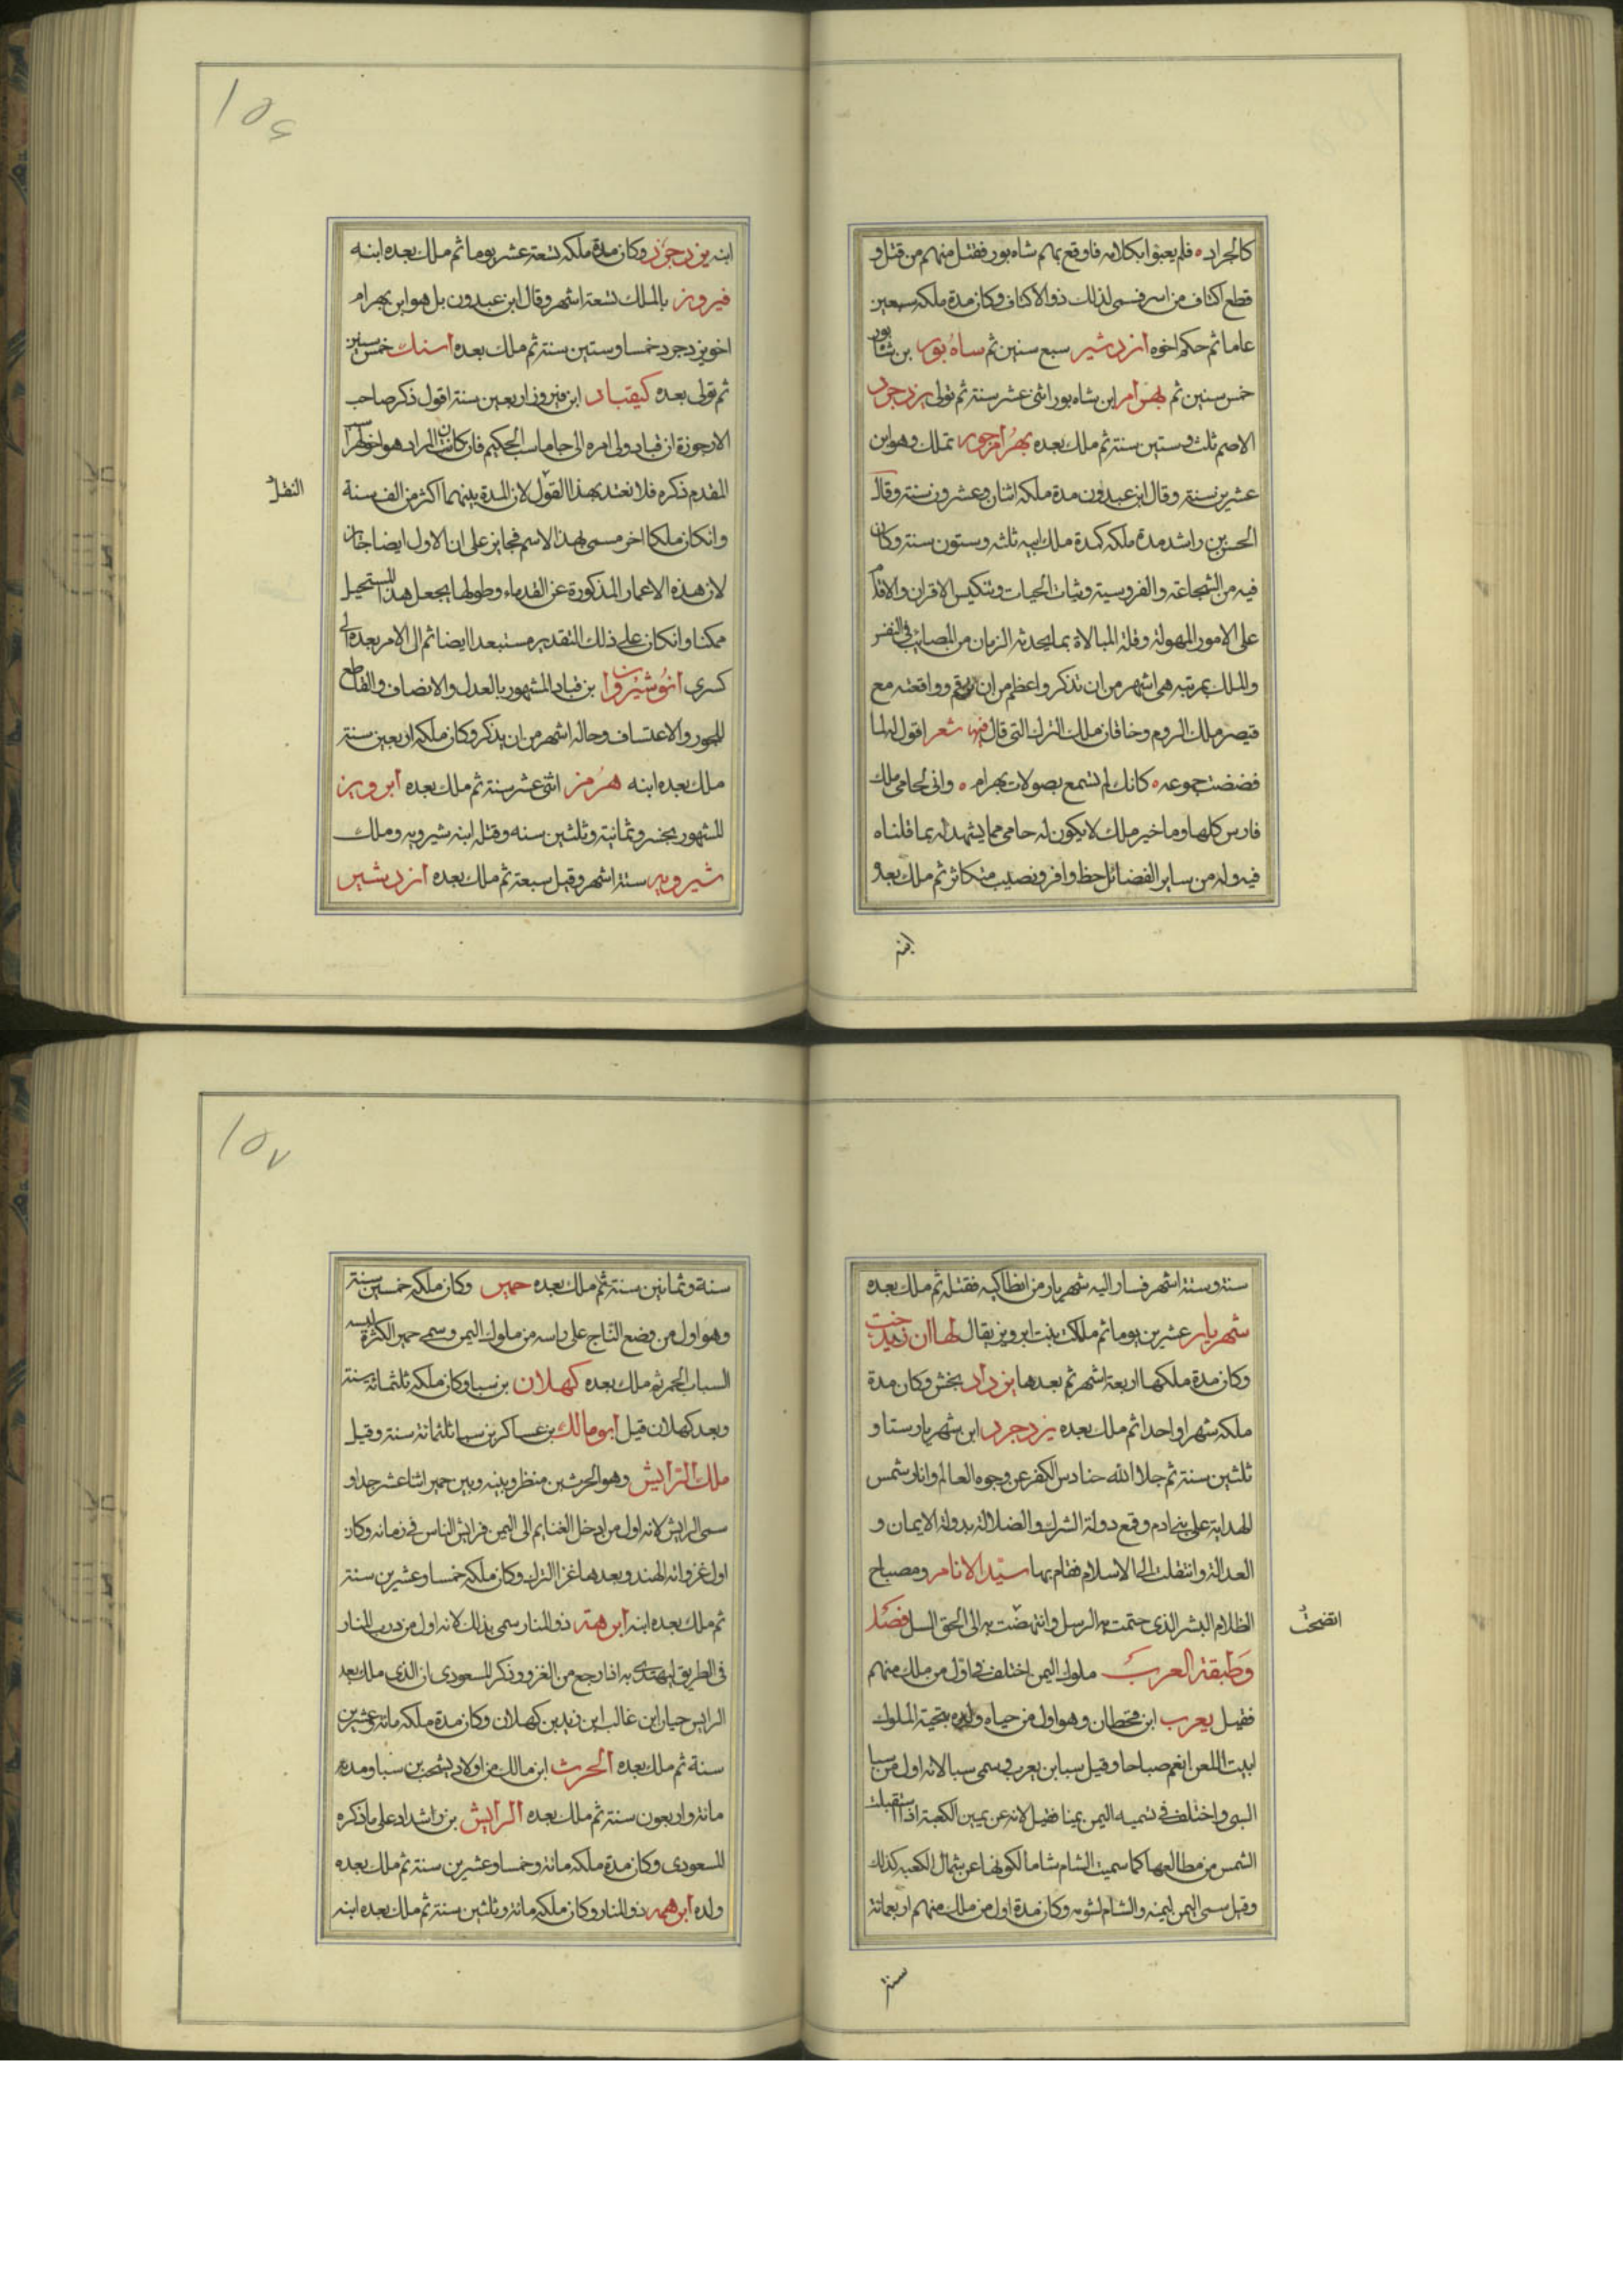 كالجراد ه فلم يعبوا بكلامه فاوقع بهم شاه بور فقتل منهم من قتل و
قطع اكتاف من اسر فسمى لذلك ذو الاكتاف وكان مدة ملكه سبعين
عاما ثم حكم اخوه ازدشير سبع سنين ثم ساه بور بن شابور
خمس سنين ثم بهرام ابن شاه بور اثنى عشر سنة ثم تولى يزدجرد
الاصم ثلث وستين سنة ثم ملك بعده بهرام جور تملك وهو ابن
عشرين سنة وقال ابن عبدون مدة ملكه اثنان وعشرون سنة وقال
الحسن بن راشد مدة ملكه كمدة ملك ابيه ثلثه وستون سنة وكان
فيه من الشجاعة والفروسية وثبات الحيات وتنكيس الاقران والاقدام
على الامور المهولة وقلة المبالاة بما يحدثه الزمان من المصائب فى النفس
والملك بمرتبه هى اشهر من ان تذكر واعظم من ان وواقعته مع
قيصر ملك الروم وخاقان ملك الترك التى قال فيها شعر اقول له لما
فضضت جموعه ه كانك لم تسمع بصولات بهرام ه وانى لحامى ملك
فارس كلها وما خير ملك لا يكون له حامى مما يشهد له بما قلناه
فيه وله من ساير الفضائل حظ وافر ونصيب متكاثر ثم ملك بعده
ابنه
١٥٦
ابنه يزدجرد وكان مدة ملكه تسعة عشر يوما ثم ملك بعده ابنه
فيروز بالملك تسعة اشهر وقال ابن عبدون بل هو ابن بهرام
اخو يزدجرد خمسا وستين سنة ثم ملك بعده اسنك خمس سنين
ثم تولى بعده كيقباد ابن فيروز اربعين سنة اقول ذكر صاحب
الارجوزة ان قباد ولى امره الى جاماسب الحكيم فان كان المراد هو
المقدم ذكره فلا نعتد بهذا القول لان المدة بينهما اكثر من الف سنة
النقل
وانكان ملكا اخر مسمى بهذا الاسم فجايز على ان الاول ايضا جائز
لان هذه الاعمار المذكورة عن القدماء وطولها يجعل هذا المستحيل
ممكنا وانكان على ذلك التقدير مستبعدا ايضا ثم ال الامر بعده الى
كسرى انوشيروان بن قباد المشهور بالعدل والانصاف والقاطع
للجور والاعتساف وحاله اشهر من ان يذكر وكان ملكه اربعين سنة
ملك بعده ابنه هرمز اثنى عشر سنة ثم ملك بعده ابرويز
المشهور بخسرو ثمانية وثلثين سنه وقتله ابنه شيرويه وملك
شيرويه ستة اشهر وقيل سبعة ثم ملك بعده ازدشير
سنة وستة اشهر فسار اليه شهريار من انطاكيه فقتله ثم ملك بعده
شهريار عشرين يوما ثم ملكت بنت ابرويز يقال لها
وكان مدة ملكها اربعة اشهر ثم بعدها يزداد بخش وكان مدة
ملكه شهرا واحدا ثم ملك بعده يزدجرد ابن شهريار ستا و
ثلثين سنة ثم جلا الله حنادس الكفر عن وجوه العالم وانار شمس
الهداية على بنى ادم وقع دولة الشرك والضلالة بدولة الايمان و
العدالة وانتقلت الى الاسلام فقام بها سيد الانام ومصباح
الظلام البشر الذى ختمت به الرسل وانتهضت به الى الحق السل فصل
اتضحت
وطبقة العرب ملوك اليمن اختلف فى اول من ملك منهم
فقيل يعرب ابن قحطان وهو اول من حياه ولده بتحية الملوك
ابيت اللعن انعم صباحا وقيل سبا بن يعرب وسمى سبا لانه اول من سبا
السبى واختلف فى تسميه اليمن يمنا فقيل لانه عن يمين الكعبة اذا استقبلت
الشمس من مطالعها كما سميت الشام شاما لكونها عن شمال الكعبه كذلك
وقيل سمى اليمن ليمنه والشام لشومه وكان مدة اول من ملك منهم اربعمائة
سنة
١٥٧
سنة وثمانين سنة ثم ملك بعده حمير وكان ملكه خمسين سنة
وهو اول من وضع التاج على راسه من ملوك اليمن وسمى حمير لكثرة لبسه
السباب الحمر ثم ملك بعده كهلان بن سبا وكان ملكه ثلثمائة سنة
وبعد كهلان قيل ابو مالك بن عساكر بن سبا ثلثمائة سنة وقيل
ملك الرايش وهو الحرث بن منظر وبينه وبين حمير اثنا عشر جدا و
سمى الرايش لانه اول من ادخل الغنايم الى اليمن فرايش الناس فى زمانه وكان
اول غزواته الهند وبعدها غزا الترك وكان ملكه خمسا وعشرين سنة
ثم ملك بعده ابنه ابرهة ذو المنار سمى بذلك لانه اول من درب المنار
فى الطريق ليهتدى به اذا رجع من الغزو وذكر المسعودى ان الذى ملك بعد
الرايس حيار ابن غالب ابن زيد بن كهلان وكان مدة ملكه مائة وعشرين
سنة ثم ملك بعده الحرث ابن مالك من اولاد يشجب بن سبا ومدة
مائة واربعون سنة ثم ملك بعده الرايش بن شداد على ما ذكره
المسعودى وكان مدة ملكه مائة وخمسا وعشرين سنة ثم ملك بعده
ولده ابرهه ذو المنار وكان ملكه مائة وثلثين سنة ثم ملك بعده ابنه